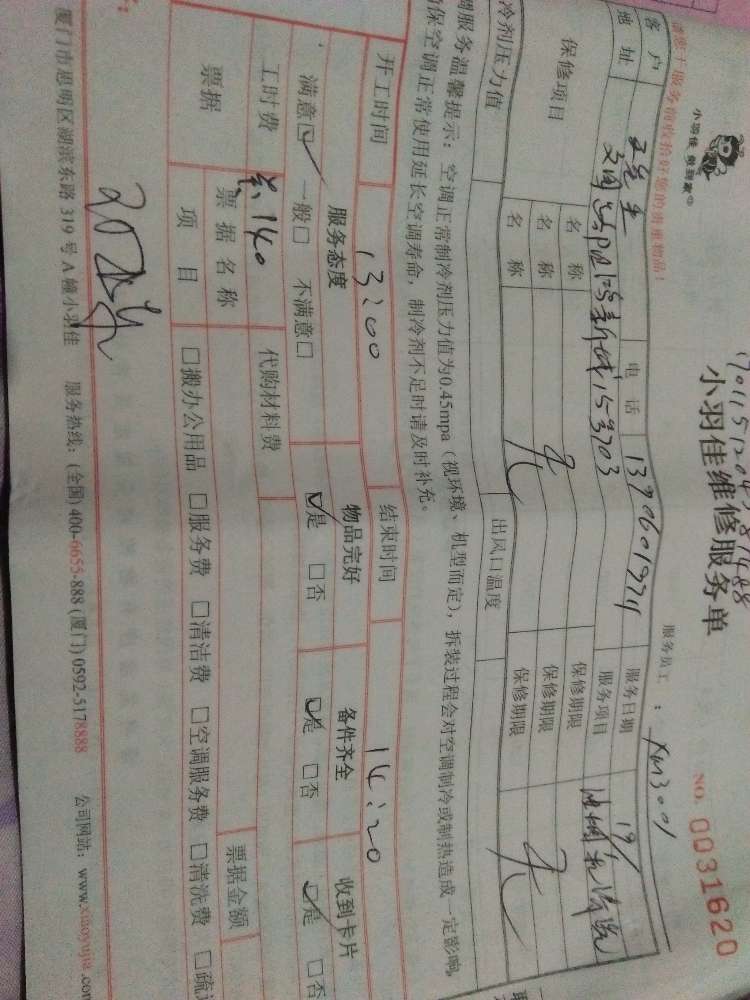 小羽佳 能到家
小羽佳维修服务单
NO. 0031620
服务员工：XM3001
请您于服务前收拾好您的贵重物品！
客户 电话 13906019721 服务日期 19/
地址 服务项目 油烟机清洗
保修项目 名称 保修期限
名称 无 保修期限 无
名称 保修期限
冷剂压力值 出风口温度
调服务温馨提示：空调正常制冷剂压力值为0.45mpa（视环境、机型而定），拆装过程会对空调制冷或制热造成一定影响，
确保空调正常使用延长空调寿命，制冷剂不足时请及时补充。
开工时间 13:00 结束时间 14:20
服务态度 物品完好 备件齐全 收到卡片
满意☑ 一般□ 不满意□ ☑是 □否 ☑是 □否 ☑是 □否
工时费 140 代购材料费
票据 票据名称 票据金额
项目 □搬办公用品 □服务费 □清洁费 □空调服务费 □清洗费
厦门市思明区湖滨东路319号A幢小羽佳 服务热线：(全国)400-6655-888 (厦门)0592-5178888 公司网站：www.xiaoyujia.com